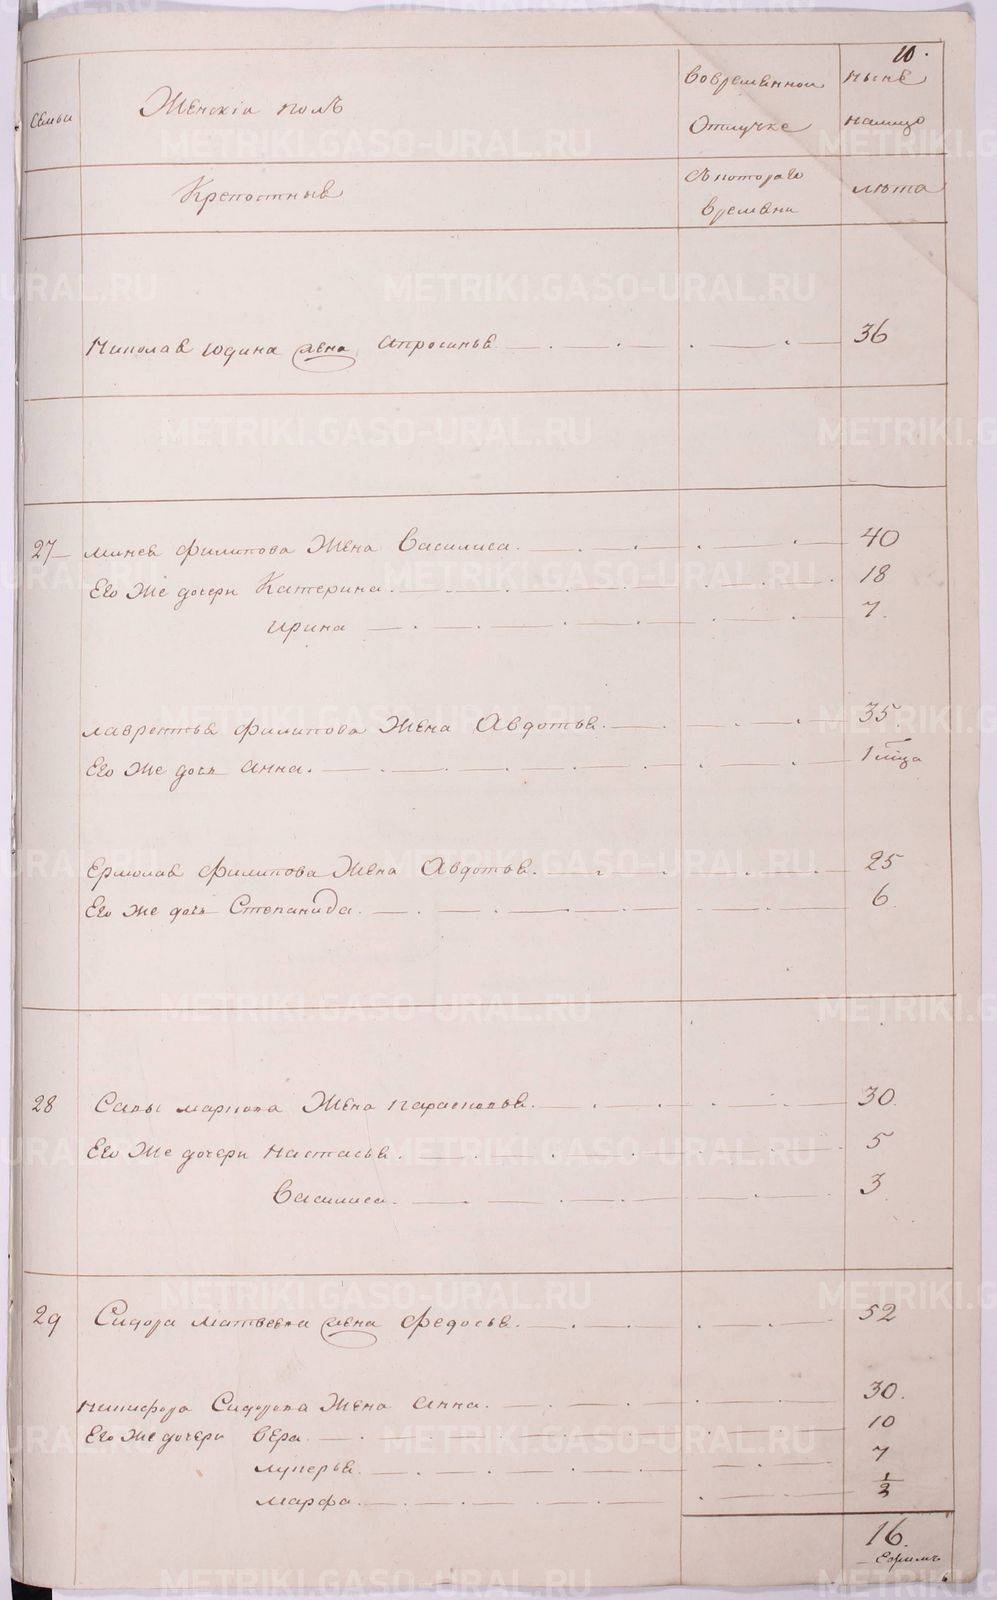 10.
Семьи Женскiи полъ Вовременнои ныне
Отлучке налицо
Крепостные Скотораго лета
времени
Николая Юдина жена Апросинья 36
27 Минея Филипова Жена Василиса 40
Его же дочери Катерина 18
Ирина 7
Лаврентья Филипова Жена Авдотья 35
Его же дочь Анна 1 м̃ца
Ермолая Филипова Жена Авдотья 25
Его же дочь Степанида 6
28 Савы Маркова Жена Парасковья 30
Его же дочери Настасья 5
Василиса 3
29 Сидора Матвеева жена Федосья 52
Никифора Сидорова Жена Анна 30
Его же дочери Вера 10
Лукерья 7
Марфа 1/2
16
METRIKI.GASO-URAL.RU